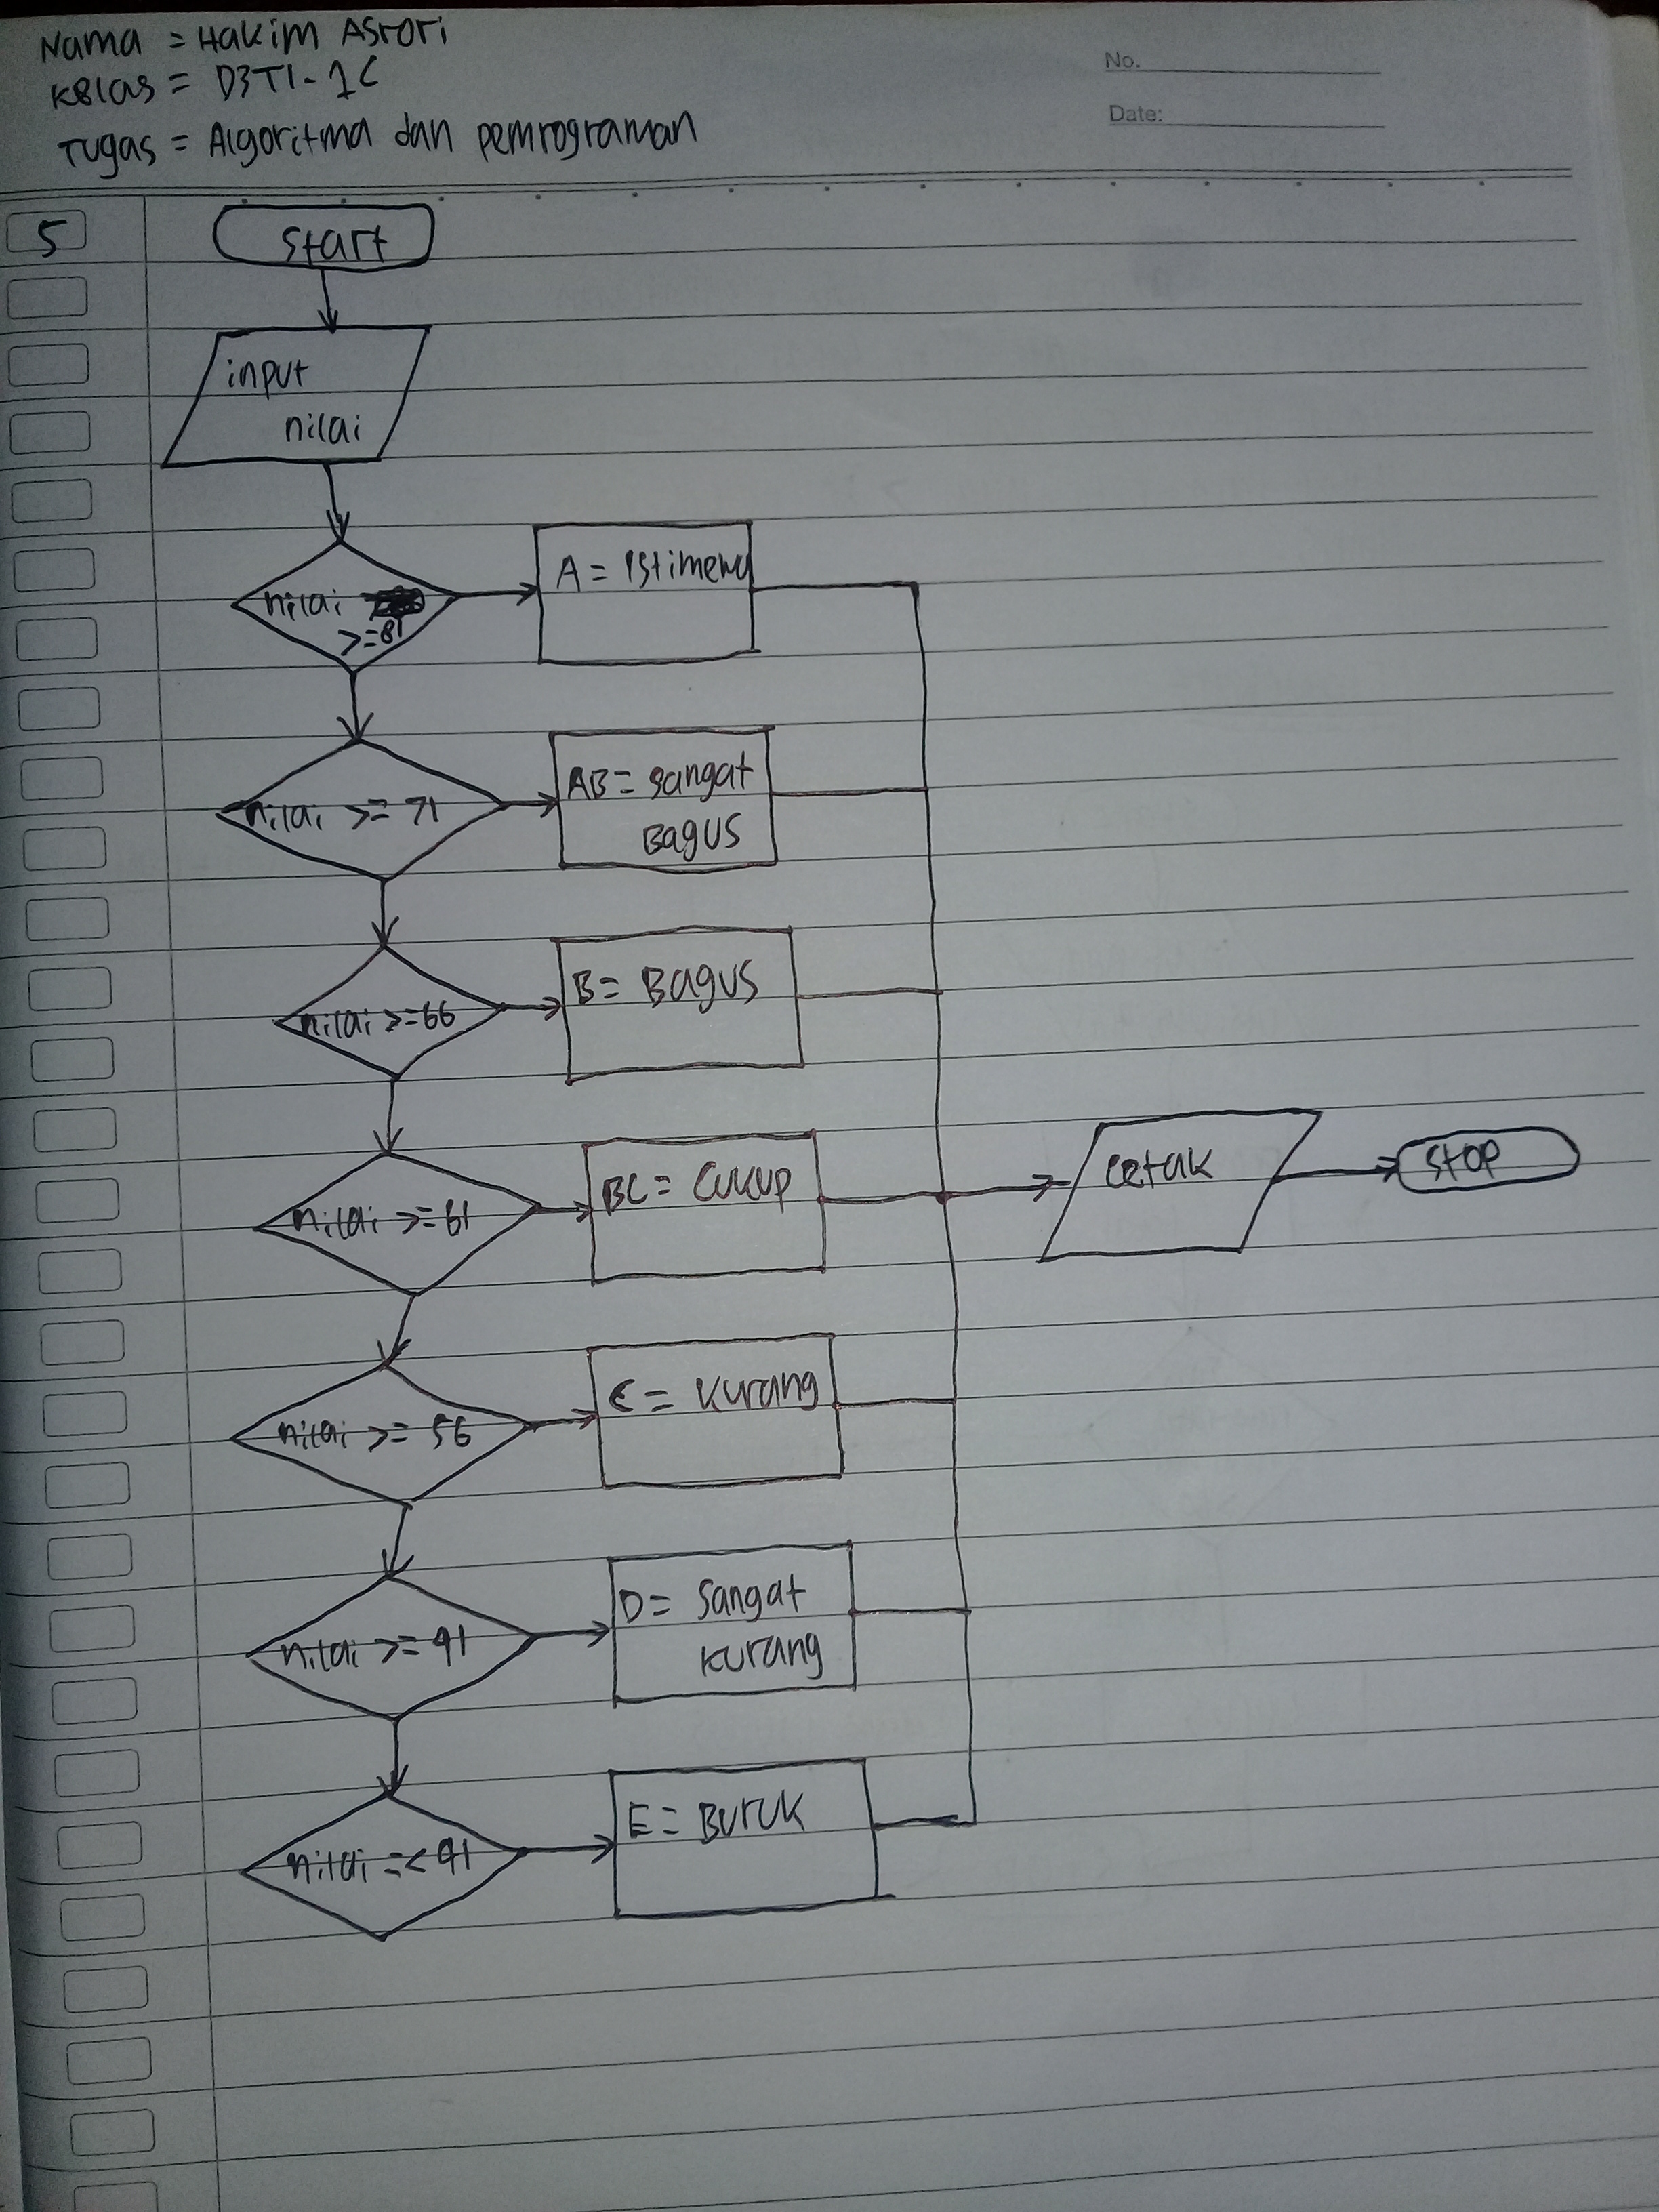 Nama = Hakim Asrori
Kelas = D3TI-1C
Tugas = Algoritma dan pemrograman
No.
Date:
5
start
input
nilai
nilai
>=81
A = Istimewa
nilai >= 71
AB = sangat
Bagus
nilai >=66
B = Bagus
nilai >=61
BC = Cukup
cetak
STOP
nilai >= 56
C = Kurang
nilai >= 41
D = Sangat
Kurang
nilai =< 41
E = Buruk